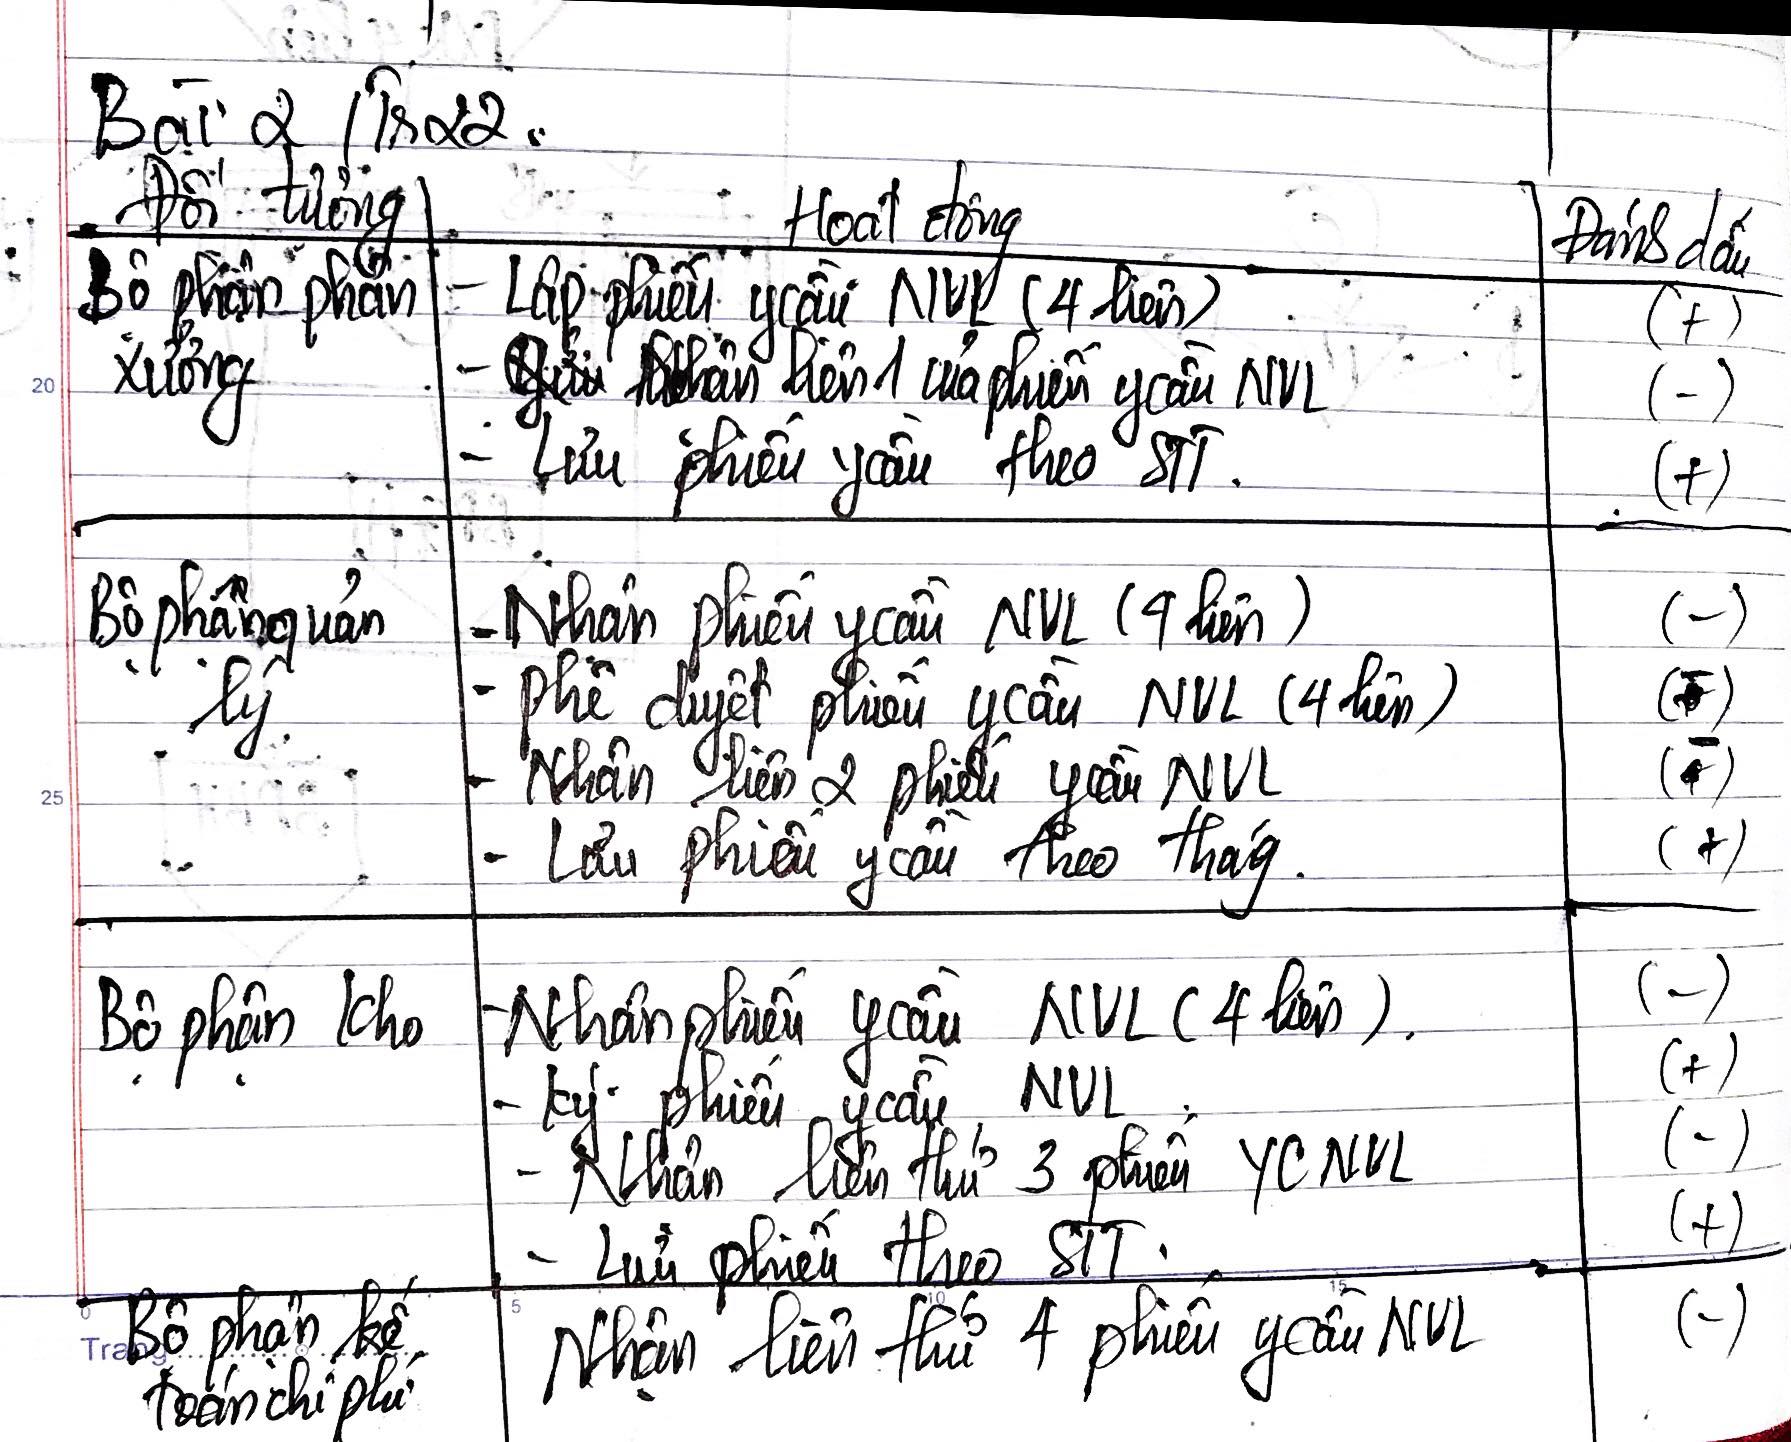 Bài 2 / Tr 22.
Đối tượng | Hoạt động | Đánh dấu
Bộ phận phân | - Lập phiếu ycầu NVL (4 liên) | (+)
xưởng | - Nhận liên 1 của phiếu ycầu NVL | (-)
- Lưu phiếu ycầu theo STT. | (+)
Bộ phận quản | - Nhận phiếu ycầu NVL (4 liên) | (-)
lý | - Phê duyệt phiếu ycầu NVL (4 liên)
- Nhận liên 2 phiếu ycầu NVL | (-)
- Lưu phiếu ycầu theo thág. | (+)
Bộ phận kho | - Nhận phiếu ycầu NVL (4 liên). | (-)
- Ký phiếu ycầu NVL. | (+)
- Nhận liên thứ 3 phiếu YC NVL | (-)
- Lưu phiếu theo STT. | (+)
Bộ phận kế | Nhận liên thứ 4 phiếu ycầu NVL | (-)
toán chi phí
20
25
0 5 10 15
Trang